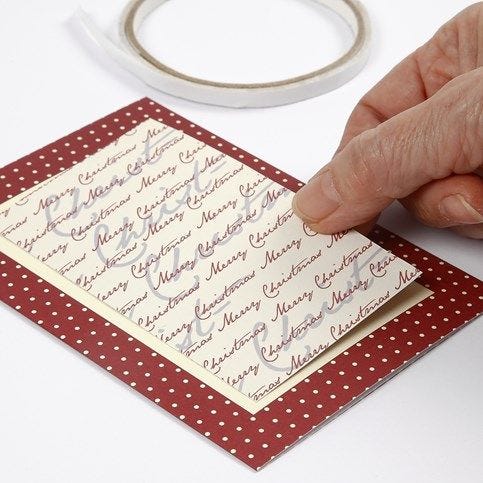 Merry Christmas Merry
Merry Christmas Merry Christmas
Christmas Merry Christmas
Merry Christmas Merry Christmas
Merry Christmas Merry Christmas
Christmas Merry Christmas
Merry Christmas Merry Christmas
Merry Christmas Merry Christmas
Christmas Merry Christmas
Merry Christmas